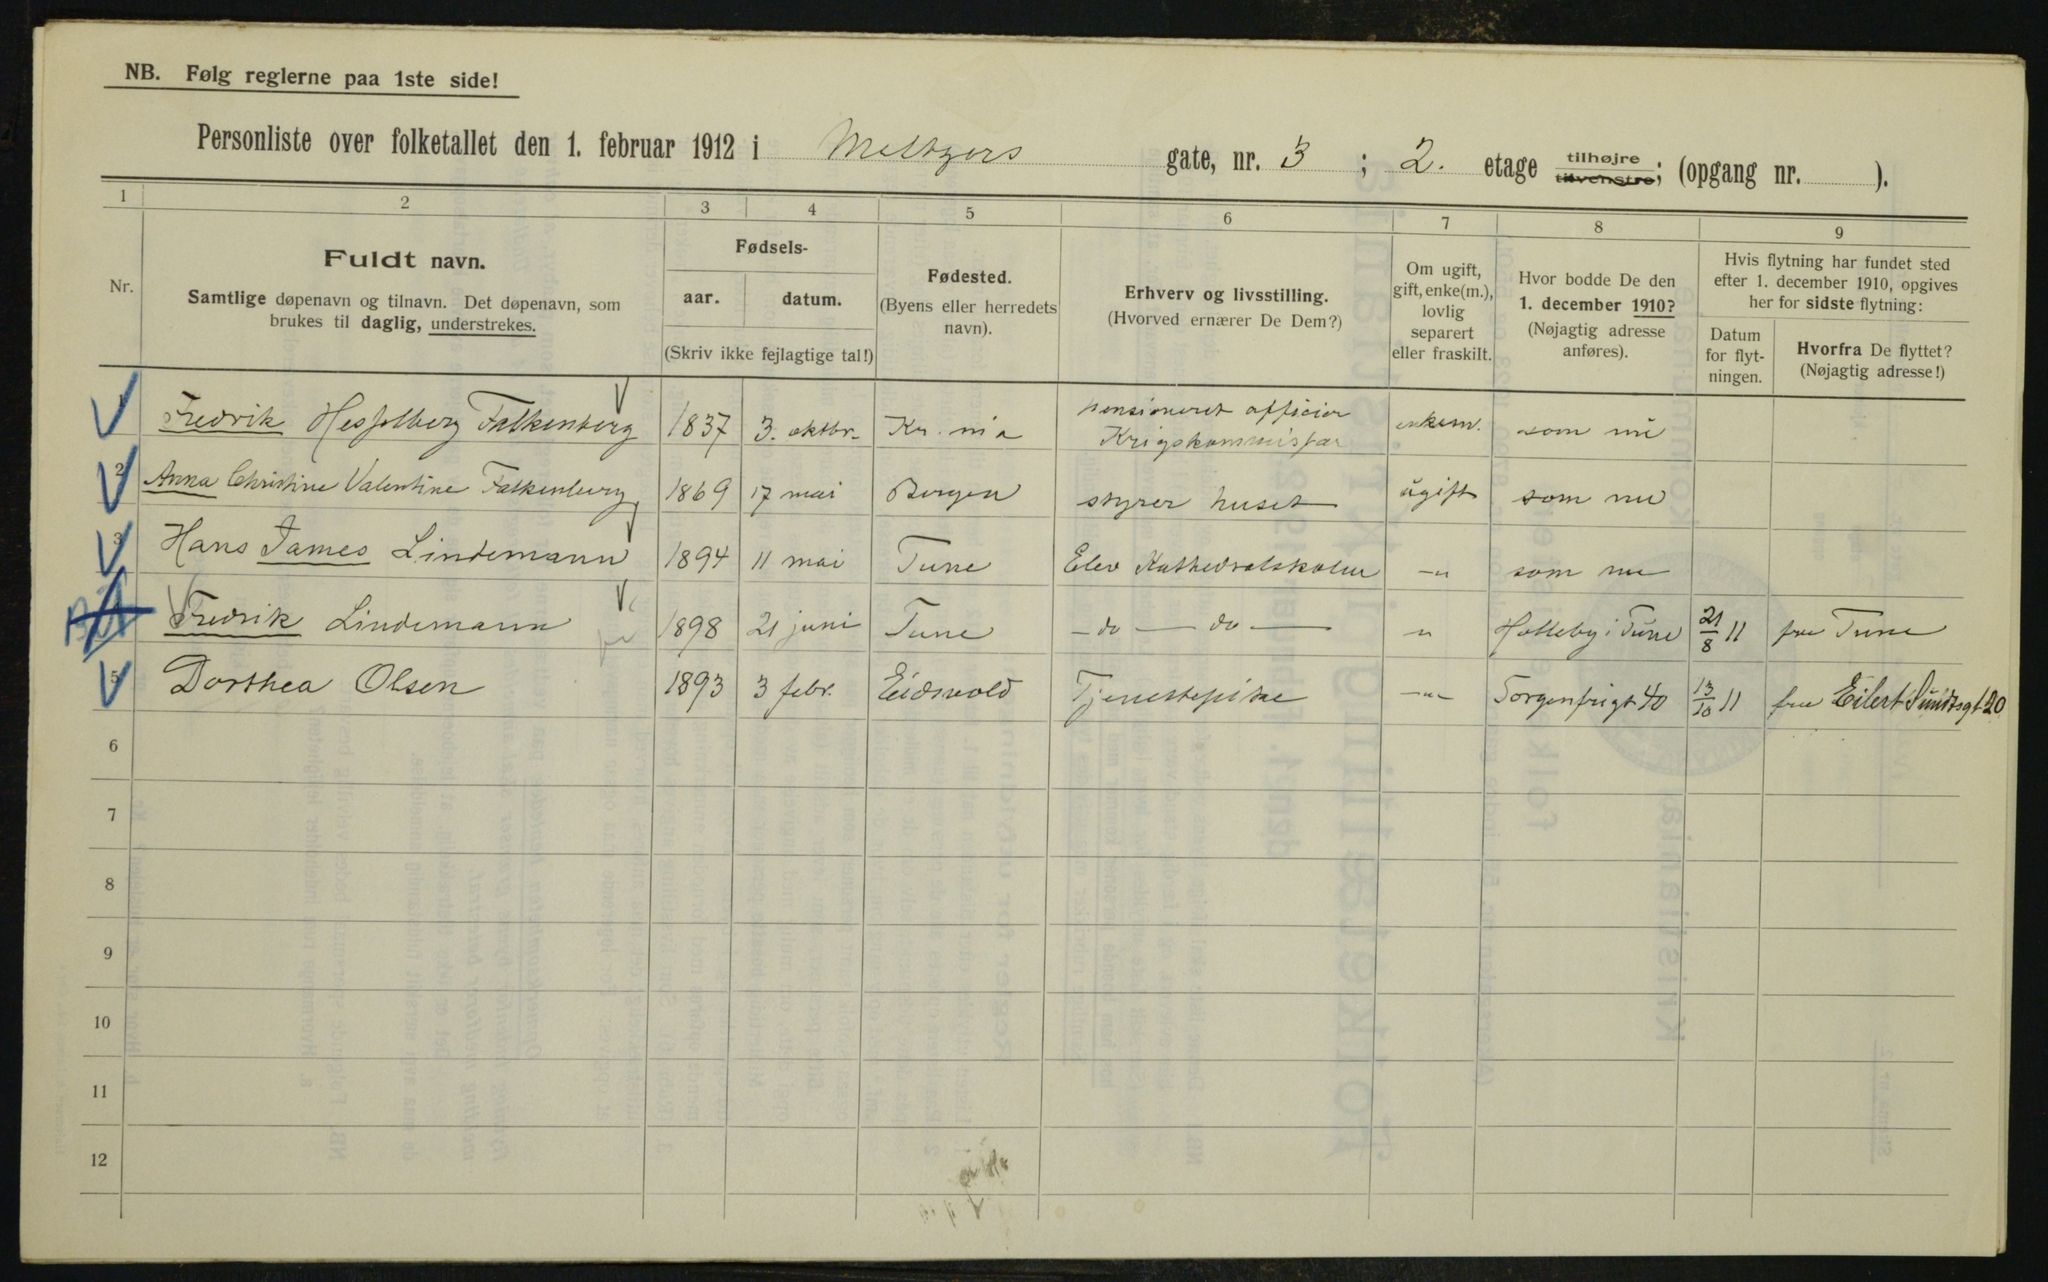 NB. Følg reglerne paa 1ste side!
Personliste over folketallet den 1. februar 1912 i Meltzers gate, nr. 3 ; 2. etage tilhøjre tilvenstre; (opgang nr. ).
1 2 3 4 5 6 7 8 9
Nr.
Fuldt navn.
Samtlige døpenavn og tilnavn. Det døpenavn, som
brukes til daglig, understrekes.
Fødsels-
aar. datum.
(Skriv ikke fejlagtige tal!)
Fødested.
(Byens eller herredets
navn).
Erhverv og livsstilling.
(Hvorved ernærer De Dem?)
Om ugift,
gift, enke(m.),
lovlig
separert
eller fraskilt.
Hvor bodde De den
1. december 1910?
(Nøjagtig adresse
anføres).
Hvis flytning har fundet sted
efter 1. december 1910, opgives
her for sidste flytning:
Datum
for flyt-
ningen.
Hvorfra De flyttet?
(Nøjagtig adresse!)
1 Fredrik Hesselberg Falkenberg 1837 3. oktbr. Kr.nia pensioneret officier Krigskommissær enkem. som nu
2 Anna Christine Valentine Falkenberg 1869 17 mai Bergen styrer huset ugift som nu
3 Hans James Lindemann 1894 11 mai Tune Elev Kathedralskolen -"- som nu
Fredrik Lindemann 1898 21 juni Tune - do - do - " Holleby i Tune 21/8 11 fra Tune
5 Dorthea Olsen 1893 3 febr. Eidsvold Tjenestepike -"- Sorgenfrigt 40 13/10 11 fra Eilert Sundtsgt 20
6
7
8
9
10
11
12